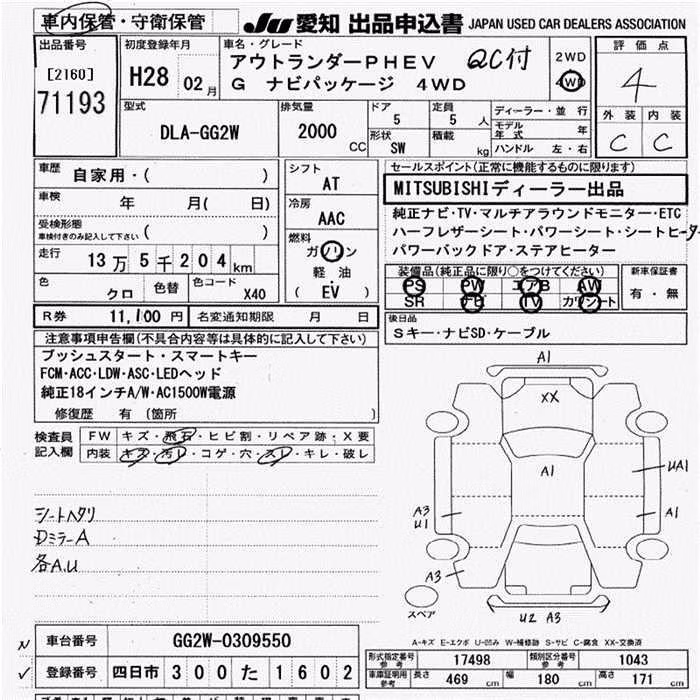 車内保管・守衛保管
JU 愛知 出品申込書 JAPAN USED CAR DEALERS ASSOCIATION
出品番号
[2160]
71193
初度登録年月
H28 02月
車名・グレード
アウトランダーPHEV QC付
G ナビパッケージ 4WD
2WD
4WD
評価点
4
外装 内装
C C
型式
DLA-GG2W
排気量
2000 CC
ドア
5
定員
5 人
形状
SW
積載
kg
ディーラー・並行
モデル年式 年
ハンドル 左・右
車歴
自家用・( )
車検
年 月( 日)
受検形態
車検付きのみ記入して下さい ( )
走行
13万5千204km
色
クロ
色替
色コード
X40
シフト
AT
冷房
AAC
燃料
ガソリン
軽油
( EV )
セールスポイント(正常に機能するものに限ります)
MITSUBISHIディーラー出品
純正ナビ・TV・マルチアラウンドモニター・ETC
ハーフレザーシート・パワーシート・シートヒーター
パワーバックドア・ステアヒーター
装備品(純正品に限り○をつけてください)
PS PW エアB AW
SR ナビ TV カワシート
新車保証書
有・無
R券 11,100円 名変通知期限 月 日
後日品
Sキー・ナビSD・ケーブル
注意事項申告欄(不具合内容等は具体的に記入して下さい)
プッシュスタート・スマートキー
FCM・ACC・LDW・ASC・LEDヘッド
純正18インチA/W・AC1500W電源
修復歴 有 (箇所 )
検査員記入欄
FW キズ・飛石・ヒビ割・リペア跡・X要
内装 キズ・汚レ・コゲ・穴・スレ・キレ・破レ
シートヘタリ
DミラーA
各A.U
A1
XX
A1
UA1
A3
U1
A1
A3
スペア
U2 A3
A-キズ E-エクボ U-凹み W-補修跡 S-サビ C-腐食 XX-交換済
車台番号 GG2W-0309550
登録番号 四日市 300 た 1602
型式指定番号 参考 17498 類別区分番号 参考 1043
車庫証明用 参考 長さ 469 cm 幅 180 cm 高さ 171 cm